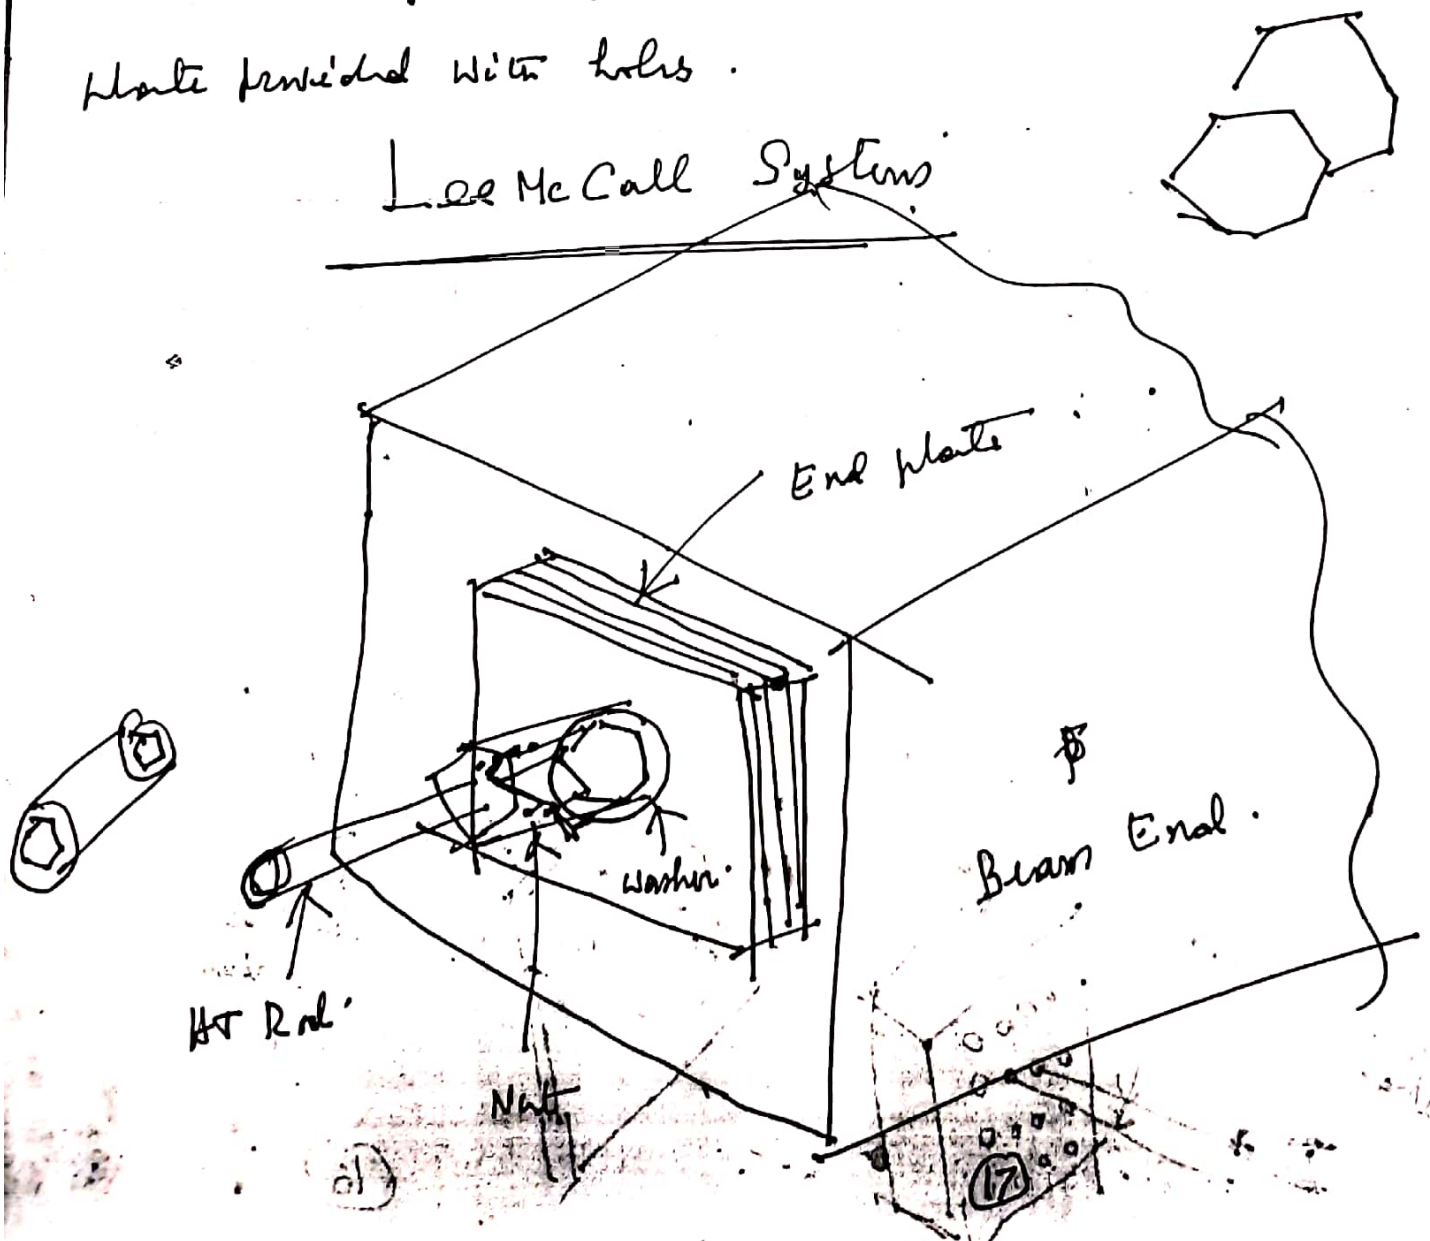 plate provided with holes.
Lee Mc Call Systems
End plate
washer.
Beam End.
HT Rod.
Nut
d)
17